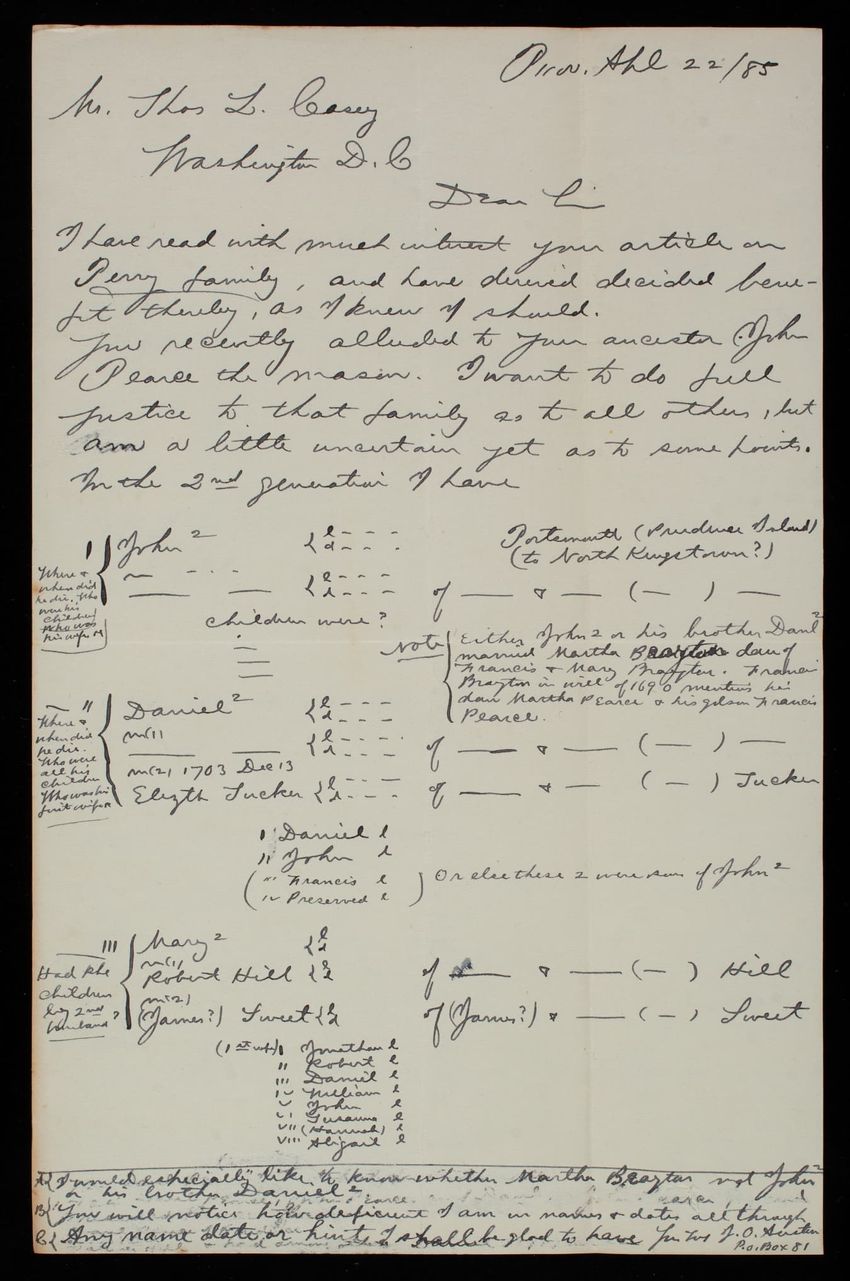 Prov. Apl 22/85
Mr. Thos L. Casey
Washington D.C
Dear Sir
I have read with much interest your article on
Perry family, and have derived decided bene-
fit thereby, as I knew I should.
You recently alluded to your ancestor John
Pearce the mason. I want to do full
justice to that family as to all others, but
am a little uncertain yet as to some points.
In the 2nd generation I have
I John 2 { b - - - d - - - Portsmouth (Prudence Island)
(to North Kingstown?)
— - - - { b - - - d - - - of — & — ( — ) —
Where &
when did
he die. Who
were his
children
Who was
his wife
children were?
Note { Either John 2 or his brother Danl 2
married Martha Brayton dau of
Francis & Mary Brayton. Francis
Brayton in will of 1690 mentions his
dau Martha Pearce & his gdson Francis
Pearce.
II Daniel 2 { b - - - d - - -
m(1) { b - - - d - - - of — & — ( — ) —
m(2) 1703 Dec 13
Elizth Tucker { b - - - d - - - of — & — ( — ) Tucker
Where &
when did
he die.
Who were
all his
children
Who was his
first wife
I Daniel b
II John b
( III Francis b
IV Preserved b ) Or else these 2 were sons of John 2
III Mary 2 { b d
m(1)
Robert Hill { b d of — & — ( — ) Hill
m(2)
(James?) Sweet { b d of (James?) & — ( — ) Sweet
Had she
children
by 2nd
husband?
(1st wife) I Jonathan b
II Robert b
III Daniel b
IV William b
V John b
VI Susanna b
VII (Hannah) b
VIII Abigail b
A { I would especially like to know whether Martha Brayton md John 2
or his brother Daniel 2
B { You will notice how deficient I am in names & dates all through
C { Any name date or hint I shall be glad to have Yrs Tr J. O. Austin
P.O. Box 81